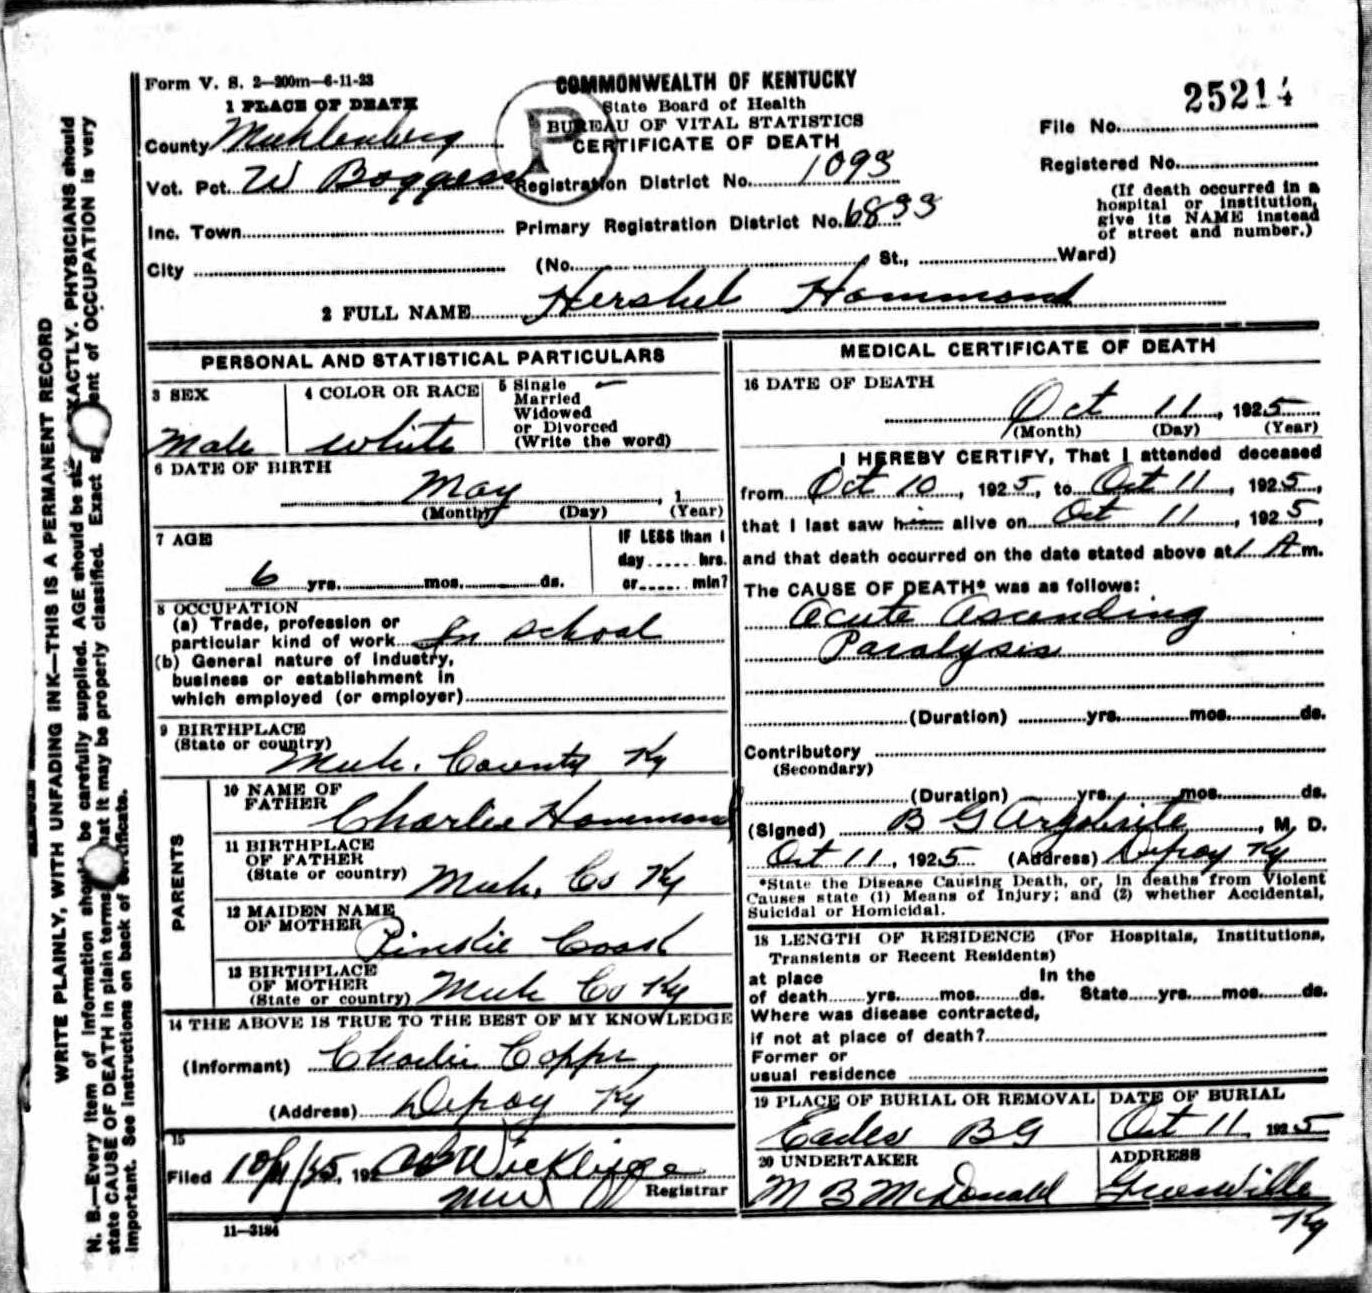 Form V. S. 2—200m—6-11-23
COMMONWEALTH OF KENTUCKY
State Board of Health
BUREAU OF VITAL STATISTICS
CERTIFICATE OF DEATH
P
25214
File No.
Registered No.
(If death occurred in a
hospital or institution,
give its NAME instead
of street and number.)
1 PLACE OF DEATH
County Muhlenberg
Vot. Pct. W Boggess Registration District No. 1093
Inc. Town Primary Registration District No. 6833
City (No. St., Ward)
2 FULL NAME Hershel Hammond
PERSONAL AND STATISTICAL PARTICULARS
3 SEX
Male
4 COLOR OR RACE
White
5 Single
Married
Widowed
or Divorced
(Write the word)
6 DATE OF BIRTH
May , 1
(Month) (Day) (Year)
7 AGE
6 yrs. mos. ds.
IF LESS than 1
day hrs.
or min?
8 OCCUPATION
(a) Trade, profession or
particular kind of work In school
(b) General nature of Industry,
business or establishment in
which employed (or employer)
9 BIRTHPLACE
(State or country)
Muh. County Ky
PARENTS
10 NAME OF
FATHER
Charlie Hammond
11 BIRTHPLACE
OF FATHER
(State or country) Muh. Co Ky
12 MAIDEN NAME
OF MOTHER
Pinskie
13 BIRTHPLACE
OF MOTHER
(State or country) Muh Co Ky
14 THE ABOVE IS TRUE TO THE BEST OF MY KNOWLEDGE
(Informant) Charlie
(Address) Depoy Ky
15
Filed 10/11/25, 192 Wickliffe
Registrar
11—3184
MEDICAL CERTIFICATE OF DEATH
16 DATE OF DEATH
Oct 11, 1925
(Month) (Day) (Year)
I HEREBY CERTIFY, That I attended deceased
from Oct 10, 1925, to Oct 11, 1925,
that I last saw him alive on Oct 11, 1925,
and that death occurred on the date stated above at 1 A m.
The CAUSE OF DEATH* was as follows:
Acute Ascending
Paralysis
(Duration) yrs. mos. ds.
Contributory
(Secondary)
(Duration) yrs. mos. ds.
(Signed) B G Argabrite, M. D.
Oct 11, 1925 (Address) Depoy Ky
*State the Disease Causing Death, or, in deaths from Violent
Causes state (1) Means of Injury; and (2) whether Accidental,
Suicidal or Homicidal.
18 LENGTH OF RESIDENCE (For Hospitals, Institutions,
Transients or Recent Residents)
at place In the
of death yrs. mos. ds. State yrs. mos. ds.
Where was disease contracted,
if not at place of death?
Former or
usual residence
19 PLACE OF BURIAL OR REMOVAL
Eades BG
DATE OF BURIAL
Oct 11, 1925
20 UNDERTAKER
M B McDonald
ADDRESS
Greenville
Ky
WRITE PLAINLY, WITH UNFADING INK—THIS IS A PERMANENT RECORD
N. B.—Every item of information should be carefully supplied. AGE should be EXACTLY. PHYSICIANS should
state CAUSE OF DEATH in plain terms, that it may be properly classified. Exact of OCCUPATION is very
important. See instructions on back of certificate.